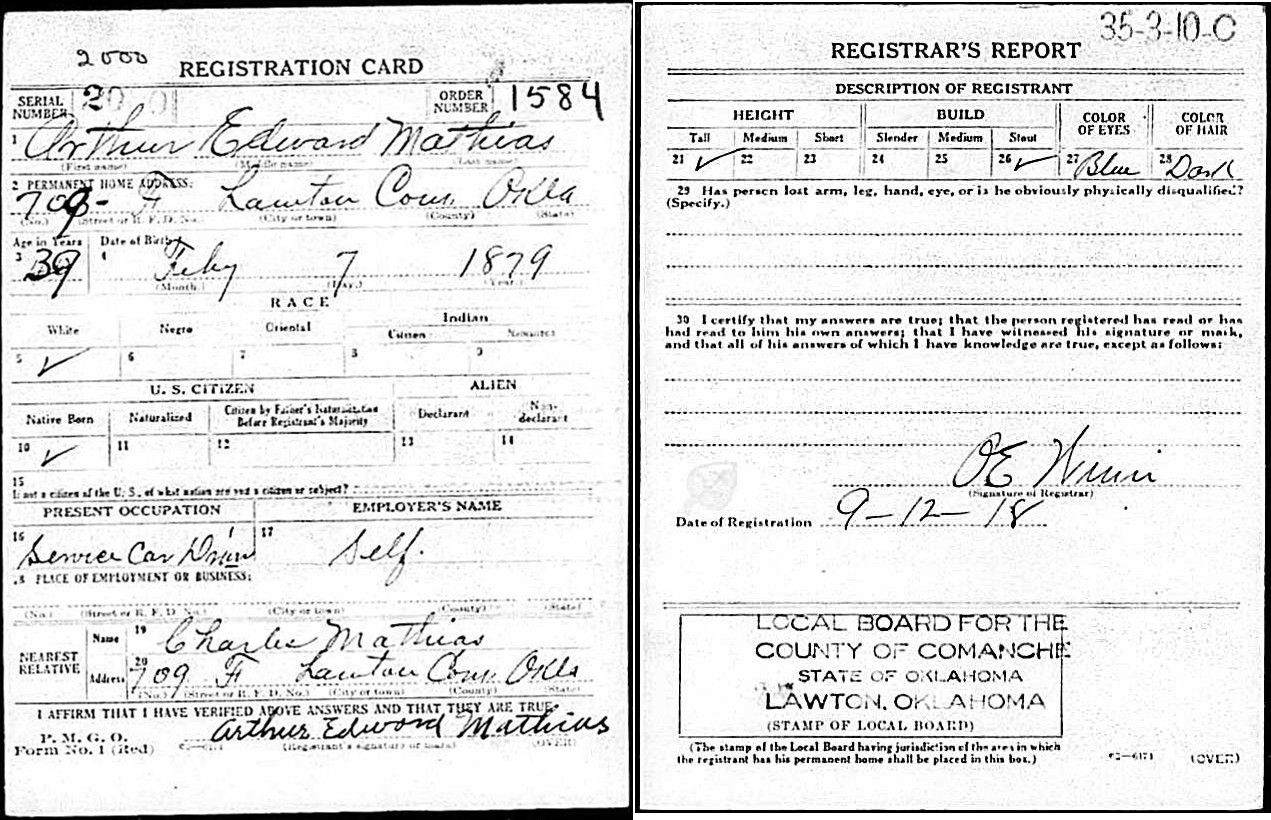 2000
REGISTRATION CARD
SERIAL NUMBER 20 0 ORDER NUMBER 1584
1 Arthur Edward Mathias
(First name) (Middle name) (Last name)
2 PERMANENT HOME ADDRESS:
709- F Lawton Com. Okla
(No.) (Street or R. F. D. No.) (City or town) (County) (State)
Age in Years Date of Birth
3 39 4 Feby 7 1879
(Month.) (Day.) (Year.)
RACE
White Negro Oriental Indian
Citizen Noncitizen
5 ✓ 6 7 8 9
U. S. CITIZEN ALIEN
Native Born Naturalized Citizen by Father's Naturalization Before Registrant's Majority Declarant Non-declarant
10 ✓ 11 12 13 14
15
If not a citizen of the U. S., of what nation are you a citizen or subject?
PRESENT OCCUPATION EMPLOYER'S NAME
16 Service Car Driver 17 Self.
18 PLACE OF EMPLOYMENT OR BUSINESS:
(No.) (Street or R. F. D. No.) (City or town) (County) (State)
NEAREST RELATIVE Name 19 Charles Mathias
Address 20 709 F Lawton Com. Okla
(No.) (Street or R. F. D. No.) (City or town) (County) (State)
I AFFIRM THAT I HAVE VERIFIED ABOVE ANSWERS AND THAT THEY ARE TRUE
P. M. G. O.
Form No. 1 (Red) Arthur Edward Mathias
(Registrant's signature or mark) (OVER)
35-3-10-C
REGISTRAR'S REPORT
DESCRIPTION OF REGISTRANT
HEIGHT BUILD COLOR OF EYES COLOR OF HAIR
Tall Medium Short Slender Medium Stout
21 ✓ 22 23 24 25 26 ✓ 27 Blue 28 Dark
29 Has person lost arm, leg, hand, eye, or is he obviously physically disqualified?
(Specify.)
30 I certify that my answers are true; that the person registered has read or has
had read to him his own answers; that I have witnessed his signature or mark,
and that all of his answers of which I have knowledge are true, except as follows:
OE
(Signature of Registrar)
Date of Registration 9-12-18
LOCAL BOARD FOR THE
COUNTY OF COMANCHE
STATE OF OKLAHOMA
LAWTON, OKLAHOMA
(STAMP OF LOCAL BOARD)
(The stamp of the Local Board having jurisdiction of the area in which
the registrant has his permanent home shall be placed in this box.)
(OVER)